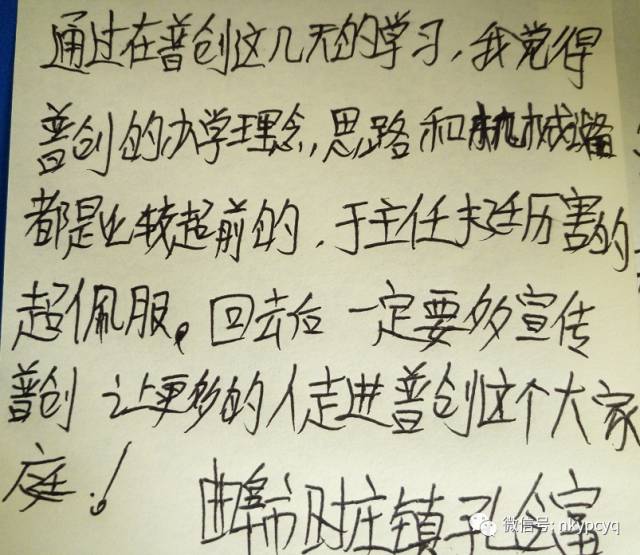 通过在普创这几天的学习，我觉得
普创的办学理念，思路和机械设备
都是比较超前的，于主任挺历害的
超佩服。回去后一定要多宣传
普创 让更多的人走进普创这个大家
庭！
曲阜市时庄镇孔令富
微信号: nkypcyq